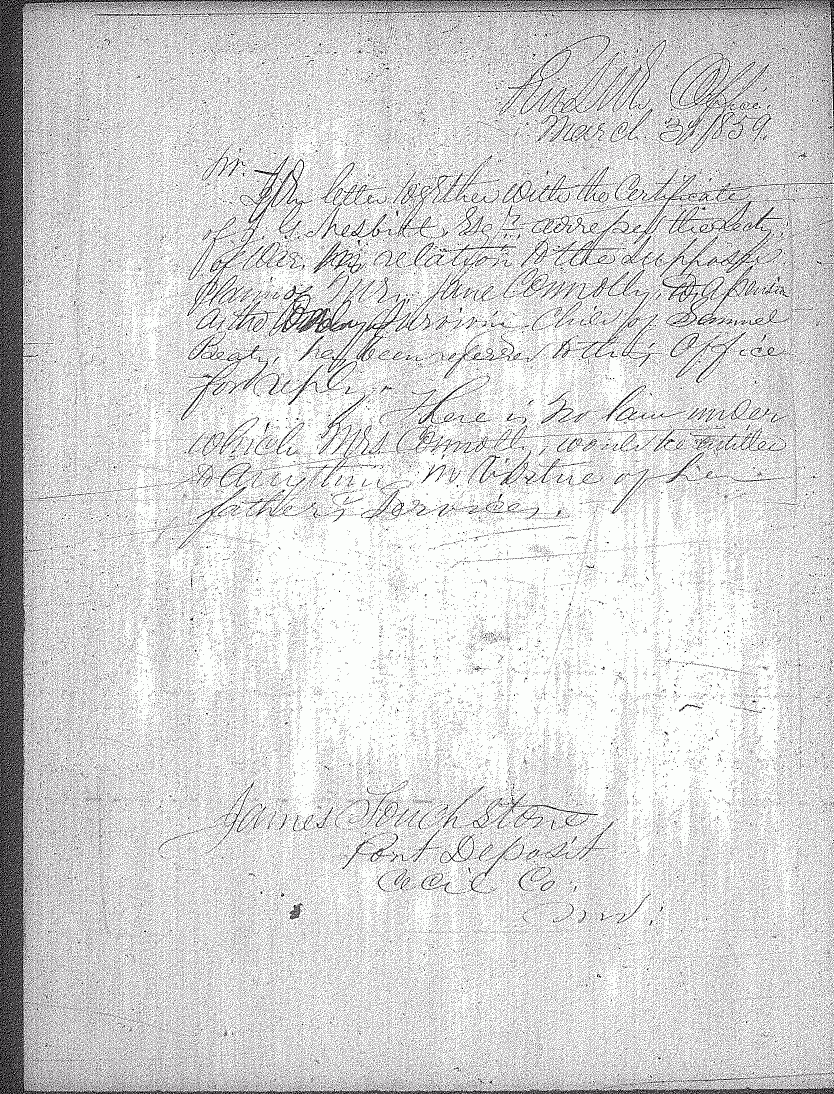 Office
March 3d 1859.
Sir.
Your letter together with the Certificate
of G. Nesbitt, Esqr. addressed the Secty.
of War, in relation to the supposed
claim of Mrs. Jane Connolly, to a pension
as the only surviving child of Samuel
Beaty, has been referred to this Office
for reply.
There is no law under
which Mrs Connolly, would be entitled
to anything in virtue of her
father's services.
James Touchstone
Port Deposit
Cecil Co.
Md.